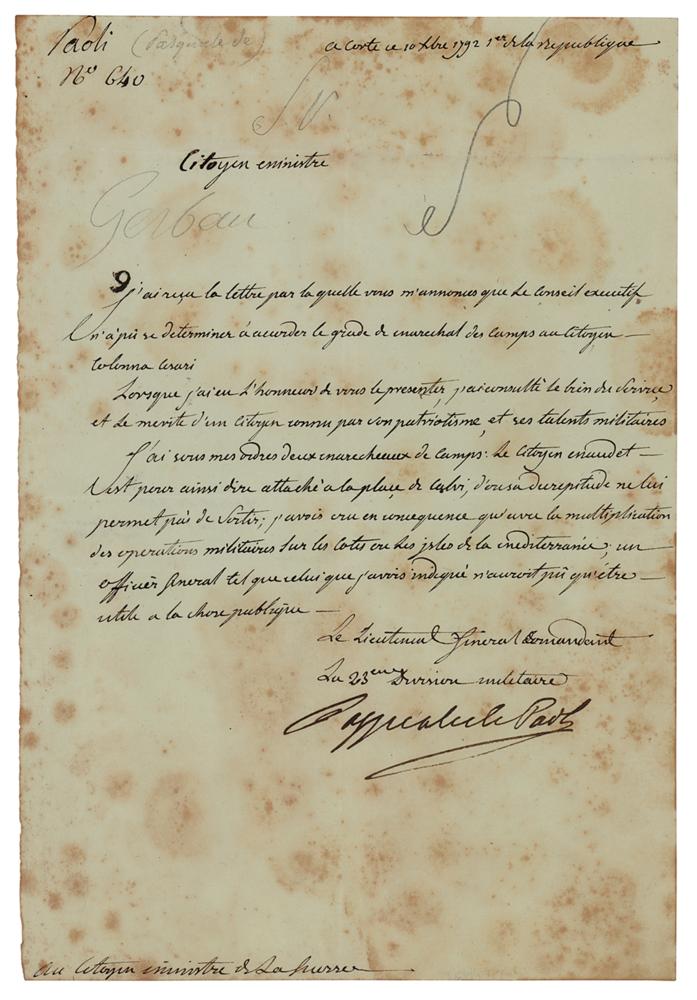 Paoli (Pasquale de)
N° 640
a Corte ce 10 Xbre 1792 1er de la republique
Citoyen ministre
J'ai reçu la lettre par la quelle vous m'annonces que Le Conseil executif
n'a pû se determiner à accorder le grade de marechal des Camps au Citoyen
Colonna Cesari
Lorsque j'ai eu L'honneur de vous le presenter, j'ai consulté le bien du Service,
et Le merite d'un Citoyen connu par son patriotisme, et ses talents militaires
J'ai sous mes ordres deux marecheaux de Camps: Le Citoyen maudet
est pour ainsi dire attaché a la place de Calvi, d'ou sa decrepitude ne lui
permet pas de Sortir; j'avois cru en consequence qu'avec la multiplication
des operations militaires Sur les Cotes ou Les jsles de la mediterranée, un
officier General tel que celui que j'avois indiqué n'auroit pû qu'être
utile a la chose publique
Le Lieutenant Général Comandant
La 23eme Division militaire
Pasquale de Paoli
Au Citoyen ministre de La Guerre